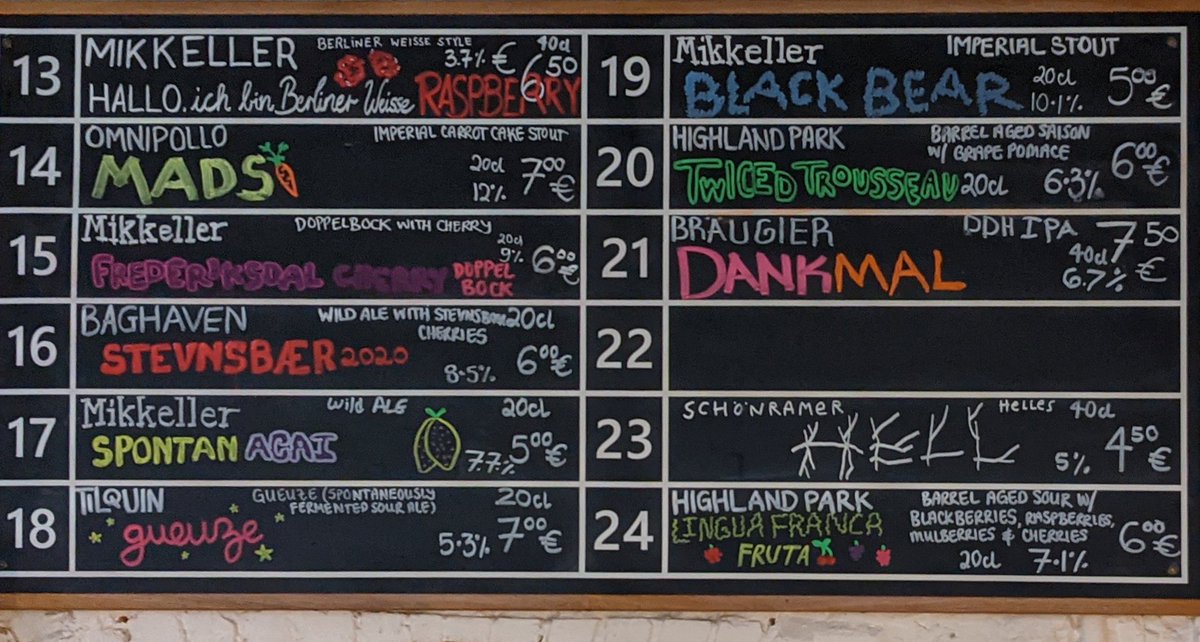 13
MIKKELLER BERLINER WEISSE STYLE 40cl
3.7% € 6 50
HALLO, ich bin Berliner Weisse RASPBERRY
14
OMNIPOLLO IMPERIAL CARROT CAKE STOUT
MADS 20cl 7 00 €
12%
15
Mikkeller DOPPELBOCK WITH CHERRY
20cl
9% 6 00 €
FREDERIKSDAL CHERRY DOPPEL
BOCK
16
BAGHAVEN WILD ALE WITH STEVNSBÆR 20cl
CHERRIES
STEVNSBÆR 2020 6 00 €
8.5%
17
Mikkeller Wild ALE 20cl
SPONTAN ACAI 7.7% 5 00 €
18
TILQUIN GUEUZE (SPONTANEOUSLY 20cl
FERMENTED SOUR ALE)
gueuze 5.3% 7 00 €
19
Mikkeller IMPERIAL STOUT
BLACK BEAR 20cl 5 00 €
10.1%
20
HIGHLAND PARK BARREL AGED SAISON
W/ GRAPE POMACE 6 00 €
TWICED TROUSSEAU 20cl 6.3%
21
BRÄUGIER DDH IPA 7 50
DANKMAL 40cl €
6.7%
22
23
SCHÖNRAMER Helles 40cl
HELL 5% 4 50 €
24
HIGHLAND PARK BARREL AGED SOUR W/
LINGUA FRANCA BLACKBERRIES, RASPBERRIES, 6 00 €
FRUTA MULBERRIES & CHERRIES
20cl 7.1%